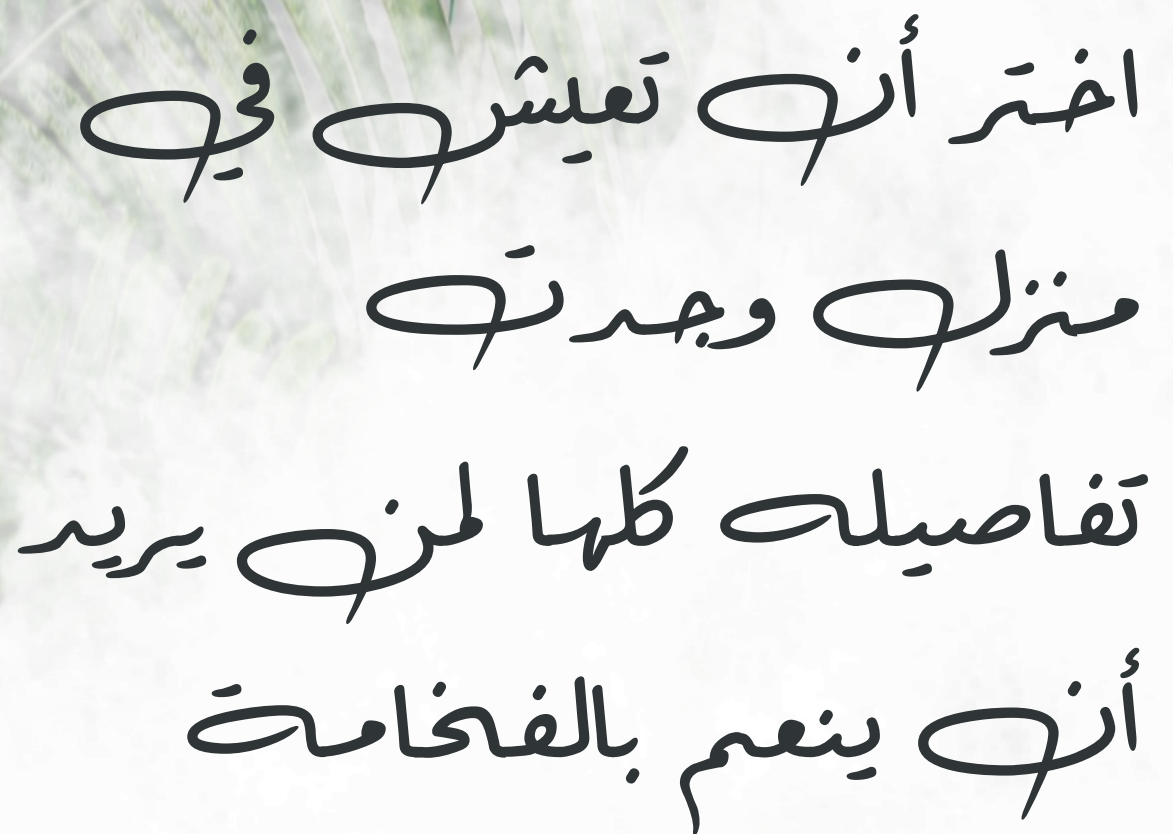 اختر أن تعيش في
منزل وجدت
تفاصيله كلها لمن يريد
أن ينعم بالفخامة